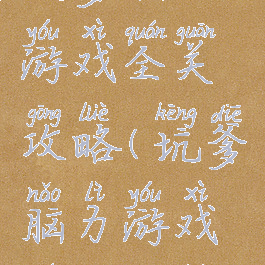 yóu xì quán guān
游戏全关
gōng luè kēng diē
攻略(坑爹
nǎo lì yóu xì
脑力游戏